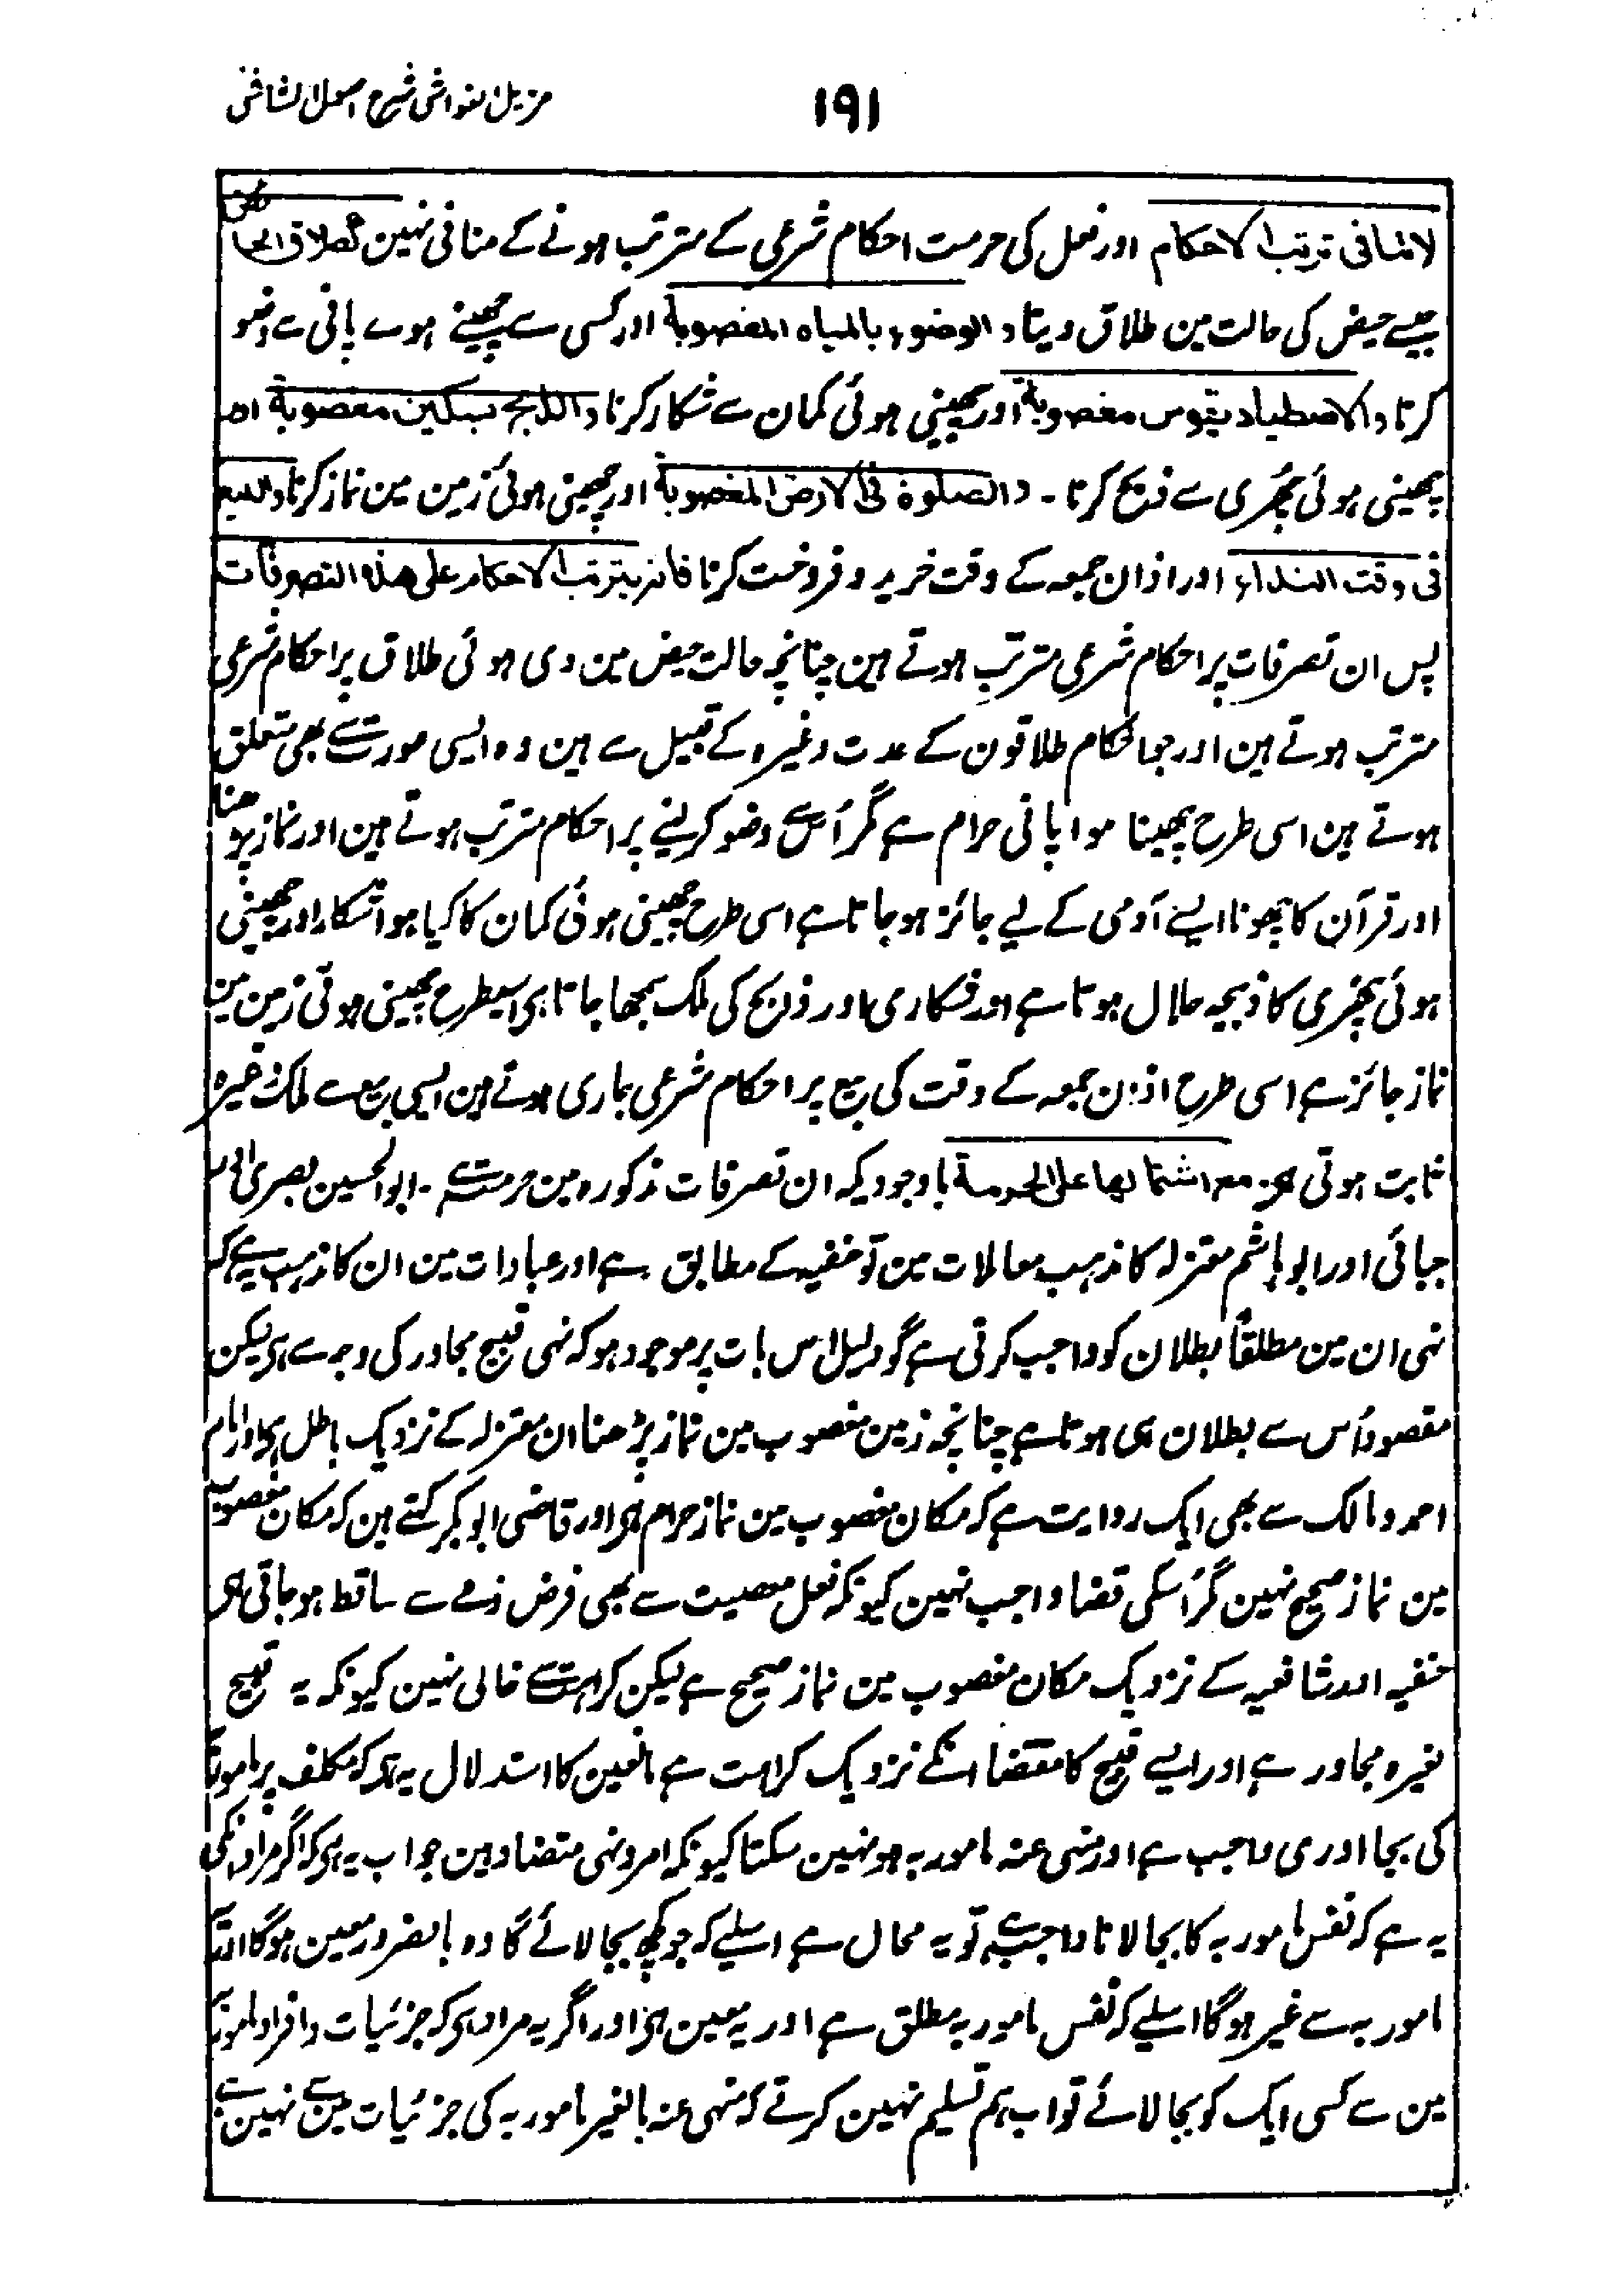 مزیل الغواشی شرح اصول الشاشی
۱۹۱
لاتنافی ترتب الاحکام اور فعل کی حرمت احکام شرعی کے مترتب ہونے کے منافی نہین کطلاق الحائض
جیسے حیض کی حالت مین طلاق دینا والوضوء بالمیاہ المغصوبۃ اور کسی سے چھینے ہوے پانی سے وضو
کرنا والاصطیاد بقوس مغصوبۃ اور چھینی ہوئی کمان سے شکار کرنا والذبح بسکین مغصوبۃ اور
چھینی ہوئی چھری سے ذبح کرنا۔ والصلوۃ فی الارض المغصوبۃ اور چھینی ہوئی زمین مین نماز کرنا والبیع
فی وقت النداء اور اذان جمعہ کے وقت خرید و فروخت کرنا فانہ یترتب الاحکام علی ھذہ التصرفات
پس ان تصرفات پر احکام شرعی مترتب ہوتے ہین چنانچہ حالت حیض مین دی ہوئی طلاق پر احکام شرعی
مترتب ہوتے ہین اور جو احکام طلاقون کے عدت وغیرہ کے قبیل سے ہین وہ ایسی عورت سے بھی متعلق
ہوتے ہین اسی طرح چھینا ہوا پانی حرام ہے مگر اُس سے وضو کرلینے پر احکام مترتب ہوتے ہین اور نماز پڑھنا
اور قرآن کا چھونا ایسے آدمی کے لیے جائز ہو جاتا ہے اسی طرح چھینی ہوئی کمان کا کیا ہوا شکار اور چھینی
ہوئی چھری کا ذبیحہ حلال ہوتا ہے اور شکاری اور ذابح کی ملک سمجھا جاتا ہی اسیطرح چھینی ہوئی زمین مین
نماز جائز ہے اسی طرح اذان جمعہ کے وقت کی بیع پر احکام شرعی جاری ہوتے ہین ایسی بیع سے ملک وغیرہ
ثابت ہوتی ہی مع اشتمالھا علی الحرمۃ باوجودیکہ ان تصرفات مذکورہ مین حرمت ہے۔ ابو الحسین بصری
جبائی اور ابو ہاشم معتزلہ کا مذہب معاملات مین تو حنفیہ کے مطابق ہے اور عبادات مین ان کا مذہب یہ ہے کہ
نہی ان مین مطلقاً بطلان کو واجب کرتی ہے گو دلیل اس بات پر موجود ہو کہ نہی قبیح مجاور کی وجہ سے ہی لیکن
مقصود اُس سے بطلان ہی ہوتا ہے چنانچہ زمین مغصوب مین نماز پڑھنا ان معتزلہ کے نزدیک باطل ہی اور امام
احمد و مالک سے بھی ایک روایت ہے کہ مکان مغصوب مین نماز حرام ہی اور قاضی ابوبکر کہتے ہین کہ مکان مغصوب
مین نماز صحیح نہین مگر اُسکی قضا واجب نہین کیونکہ فعل معصیت سے بھی فرض ذمے سے ساقط ہو جاتی ہی
حنفیہ اور شافعیہ کے نزدیک مکان مغصوب مین نماز صحیح ہے لیکن کراہت سے خالی نہین کیونکہ یہ قبیح
لغیرہ مجاور ہے اور ایسے قبیح کا مقتضا انکے نزدیک کراہت ہے مانعین کا استدلال یہ ہی کہ مکلف پر مامور بہ
کی بجا آوری واجب ہے اور منہی عنہ مامور بہ ہو نہین سکتا کیونکہ امر ونہی متضاد ہین جواب یہ ہی کہ اگر مراد انکی
یہ ہے کہ نفس مامور بہ کا بجا لانا واجب ہے تو یہ محال ہے اسلیے کہ جو کچھ بجا لائے گا وہ بالضرور معین ہوگا اور
مامور بہ سے غیر ہوگا اسلیے کہ نفس مامور بہ مطلق ہے اور یہ معین ہی اور اگر یہ مراد ہی کہ جزئیات و افراد مامور بہ
مین سے کسی ایک کو بجا لائے تو اب ہم تسلیم نہین کرتے کہ منہی عنہ بالغیر مامور بہ کی جزئیات مین سے نہین ہے